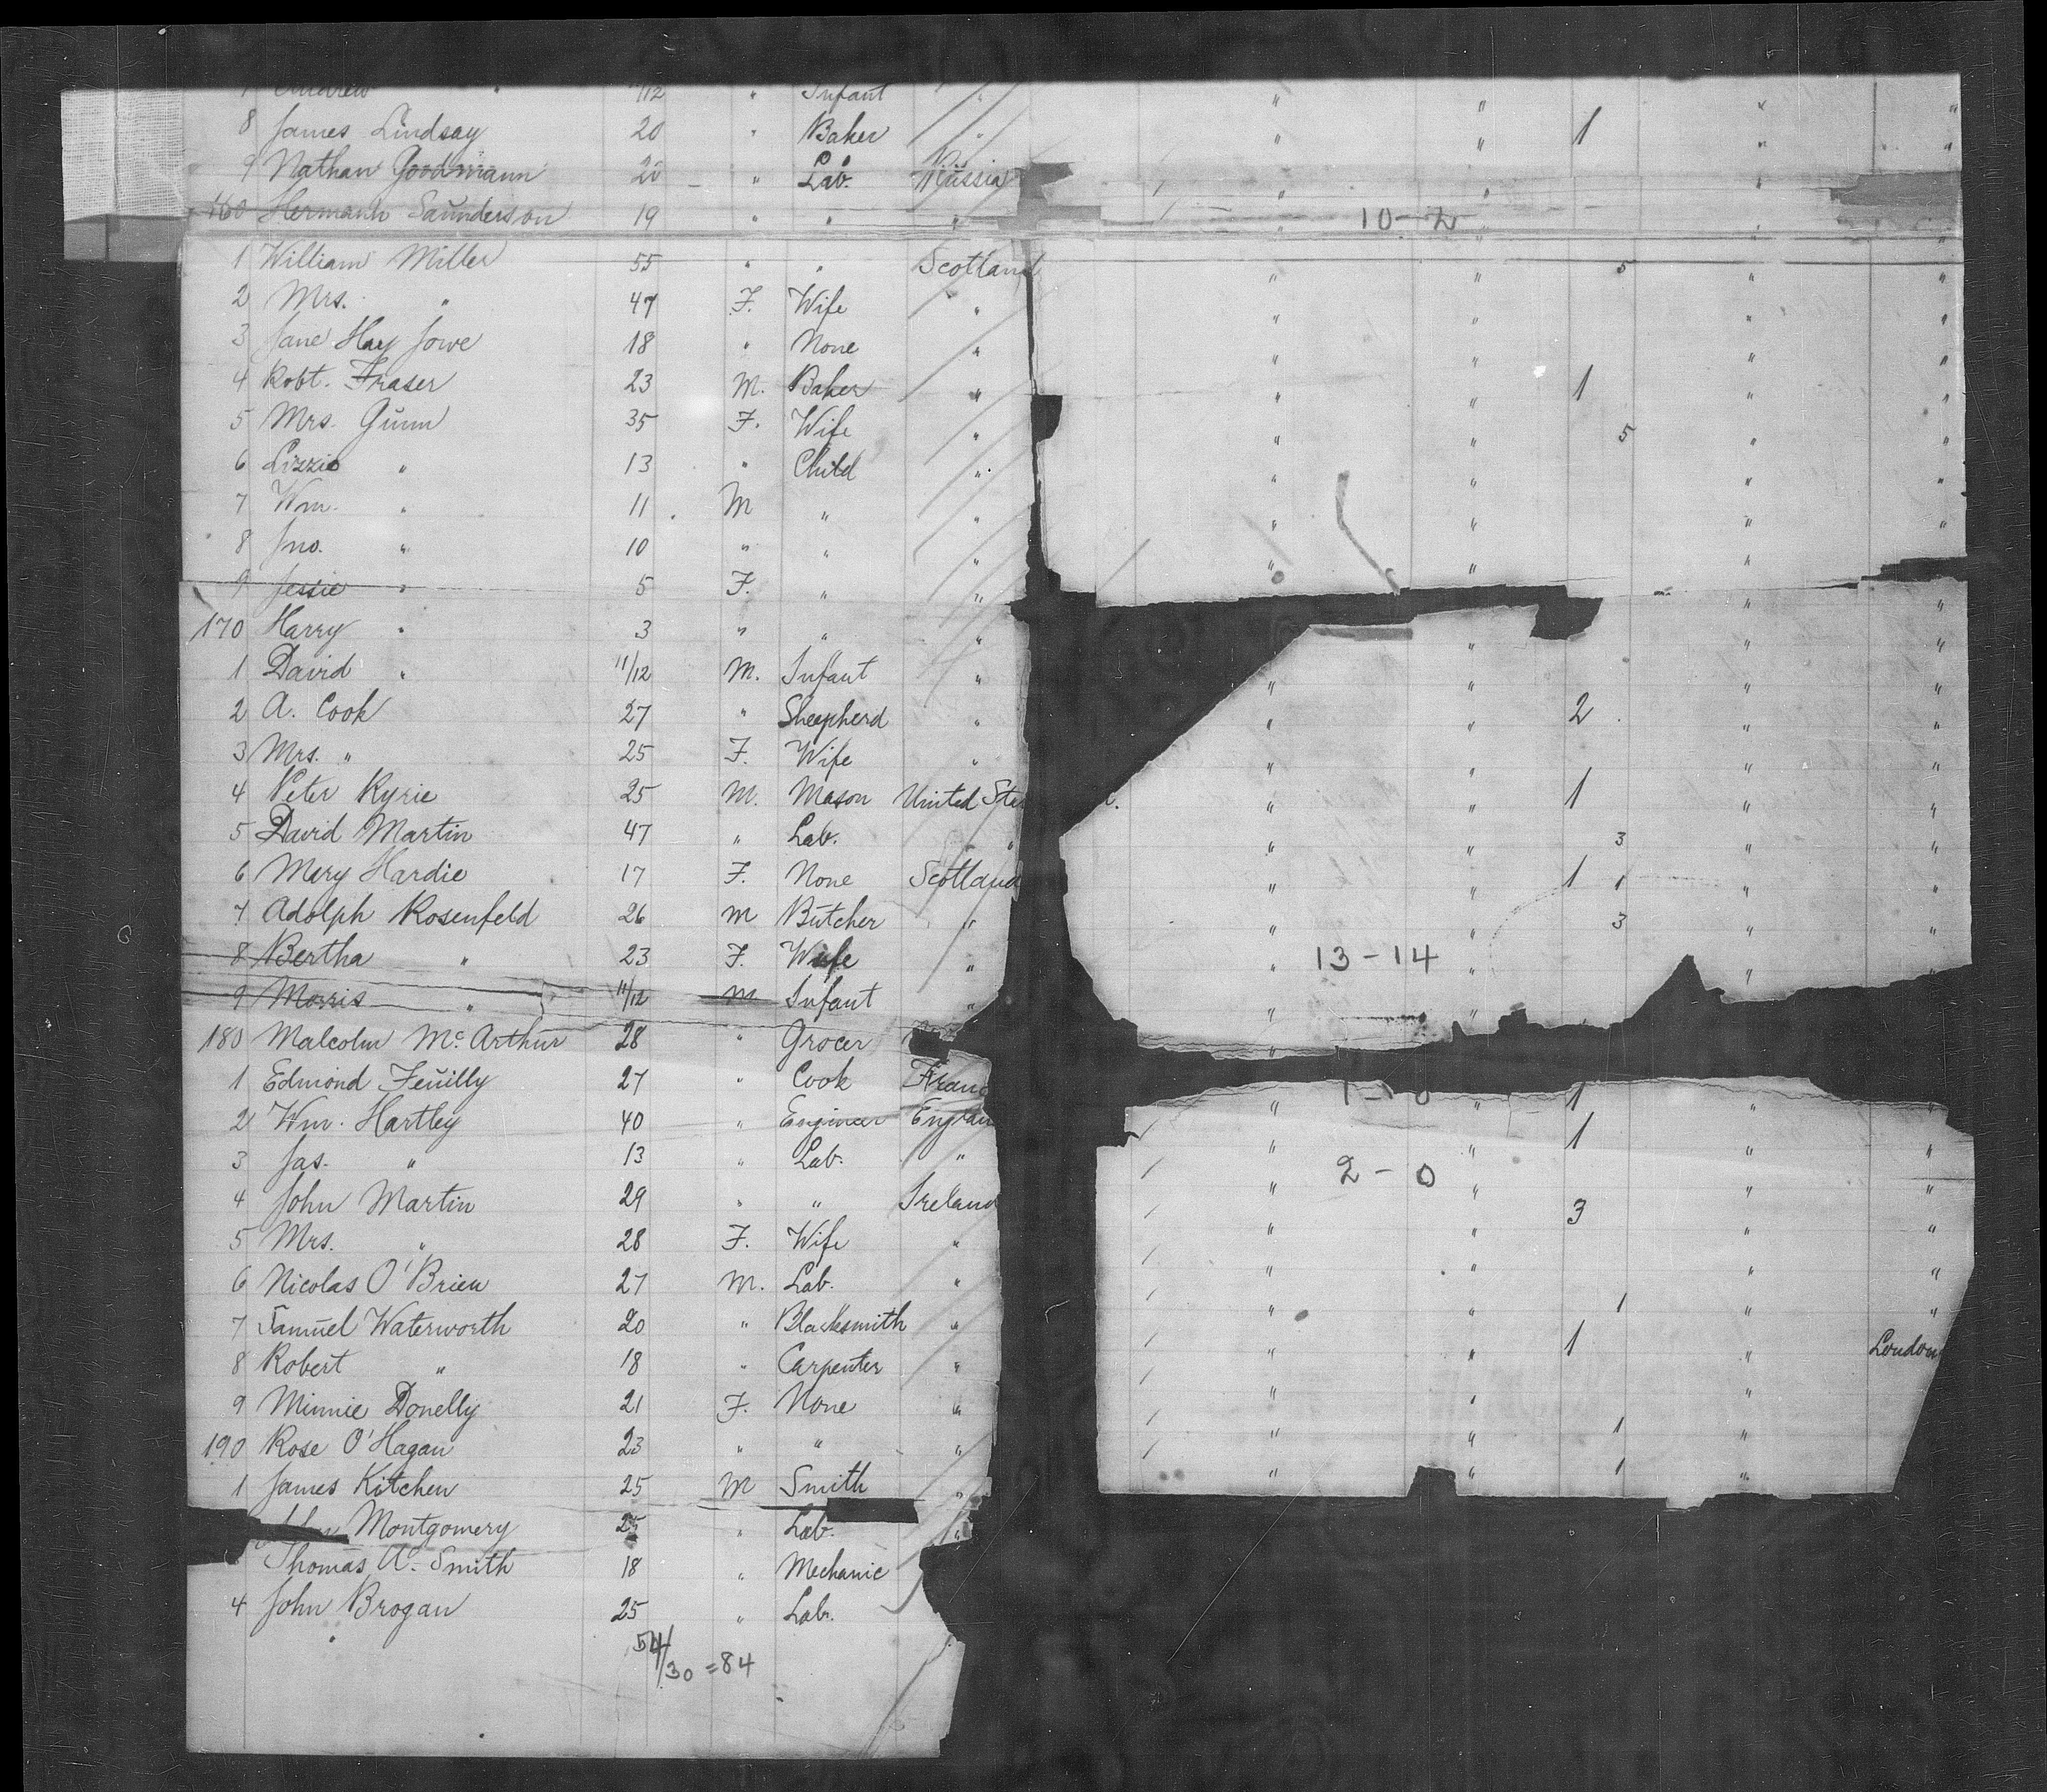 7 Andrew " /12 " Infant " " " " "
8 James Lindsay 20 " Baker " " " 1 " "
9 Nathan Goodmann 20 " Lab. Russia / " " "
160 Hermann Saunderson 19 " " " / " 10-2 " " "
1 William Miller 55 " " Scotland " " 5 " "
2 Mrs. " 47 F. Wife " " " " "
3 Jane Hay Jowe 18 " None " " " " "
4 Robt. Fraser 23 M. Baker " " " 1 " "
5 Mrs. Gunn 35 F. Wife " " " 5 " "
6 Lizzie " 13 " Child " " " " "
7 Wm. " 11 M " " " " " "
8 Jno. " 10 " " " " " "
9 Jessie " 5 F. " " " "
170 Harry " 3 " " " " " "
1 David " 11/12 M. Infant " " " " "
2 A. Cook 27 " Shepherd " " " 2 " "
3 Mrs. " 25 F. Wife " " " " "
4 Peter Kyrie 25 M. Mason United Sta " " 1 " "
5 David Martin 47 " Lab. " " " 3 " "
6 Mary Hardie 17 F. None Scotland " " 1 1 " "
7 Adolph Rosenfeld 26 M Butcher " " " 3 " "
8 Bertha " 23 F. Wife " " 13-14 " " "
9 Morris " 11/12 M Infant " "
180 Malcolm McArthur 28 " Grocer "
1 Edmond Feuilly 27 " Cook Franc " " 1 " "
2 Wm. Hartley 40 " Engineer Englan / " " 1 " "
3 Jas. " 13 " Lab. " / " 2-0 " " "
4 John Martin 29 " " Ireland / " " 3 " "
5 Mrs. " 28 F. Wife " / " " " "
6 Nicolas O'Brien 27 M. Lab. " / " " 1 " "
7 Samuel Waterworth 20 " Blacksmith " / " " 1 " London
8 Robert " 18 " Carpenter " / " " "
9 Minnie Donelly 21 F. None " / " " 1 "
190 Rose O'Hagan 23 " " " / " " 1 "
1 James Kitchen 25 M Smith "
Montgomery 25 " Lab. "
Thomas A. Smith 18 " Mechanic
4 John Brogan 25 " Lab.
54/30 = 84